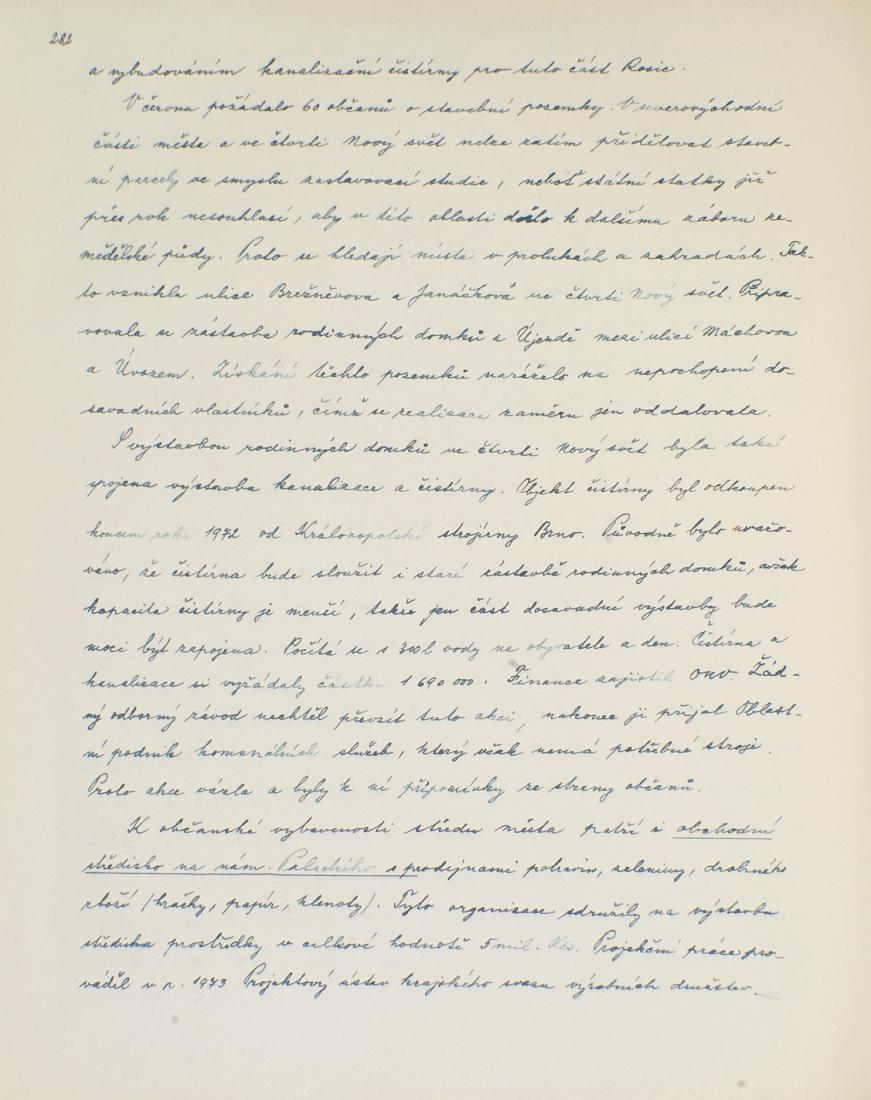 282
a vybudováním kanalizační čistírny pro tuto část Rosic.
V červnu požádalo 60 občanů o stavební pozemky. V severovýchodní
části města a ve čtvrti Nový svět nelze zatím přidělovat staveb-
ní parcely ve smyslu zastavovací studie, neboť státní statky již
přes rok nesouhlasí, aby v této oblasti došlo k dalšímu záboru ze-
mědělské půdy. Proto se hledají místa v prolukách a zahradách. Tak-
to vznikla ulice Brežněvova a Janáčkova ve čtvrti Nový svět. Připra-
vovala se zástavba rodinných domků a Újezdě mezi ulicí Máchovou
a Úvozem. Získání těchto pozemků naráželo na nepochopení do-
savadních vlastníků, čímž se realizace záměru jen oddalovala.
S výstavbou rodinných domků ve čtvrti Nový svět byla také
spojena výstavba kanalizace a čistírny. Objekt čistírny byl odkoupen
koncem roku 1972 od Královopolské strojírny Brno. Původně bylo uvažo-
váno, že čistírna bude sloužit i staré zástavbě rodinných domků, avšak
kapacita čistírny je menší, takže jen část dosavadné výstavby bude
moci být zapojena. Počítá se s 300 l vody na obyvatele a den. Čistírna a
kanalizace si vyžádaly částku 1 690 000. Finance zajistil ONV. Žád-
ný odborný závod nechtěl převzít tuto akci, nakonec ji přijal Oblast-
ní podnik komunálních služeb, který však nemá potřebné stroje.
Proto akce vázla a byly k ní připomínky ze strany občanů.
K občanské vybavenosti středu města patří i obchodní
středisko na nám. Palackého s prodejnami potravin, zeleniny, drobného
zboží (hračky, papír, klenoty). Tyto organizace sdružily na výstavbu
střediska prostředky v celkové hodnotě 5 mil. Kčs. Projekční práce pro-
váděl v r. 1973 Projektový ústav krajského svazu výrobních družstev.